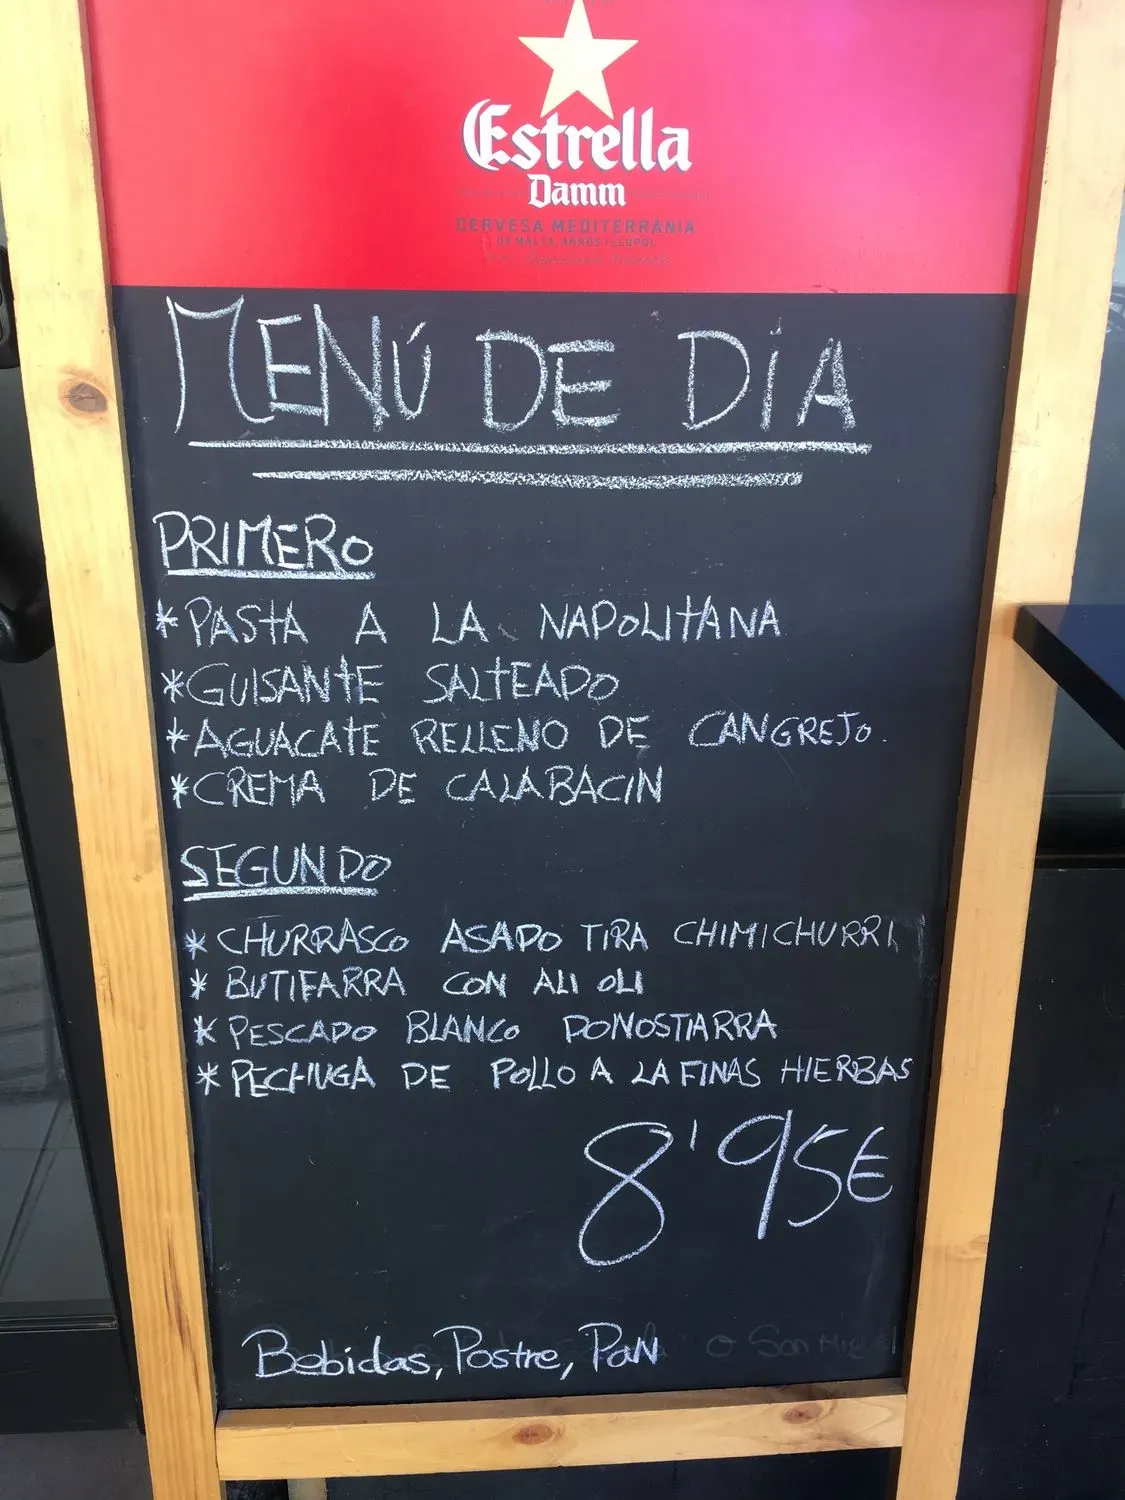 Estrella
Damm
CERVESA MEDITERRÀNIA
DE MALTA, ARRÒS I LLÚPOL
MENÚ DE DÍA
PRIMERO
*PASTA A LA NAPOLITANA
*GUISANTE SALTEADO
*AGUACATE RELLENO DE CANGREJO.
*CREMA DE CALABACIN
SEGUNDO
* CHURRASCO ASADO TIRA CHIMICHURRI
* BUTIFARRA CON ALI OLI
* PESCADO BLANCO DONOSTIARRA
* PECHUGA DE POLLO A LA FINAS HIERBAS
8'95€
Bebidas, Postre, Pan o San Miguel